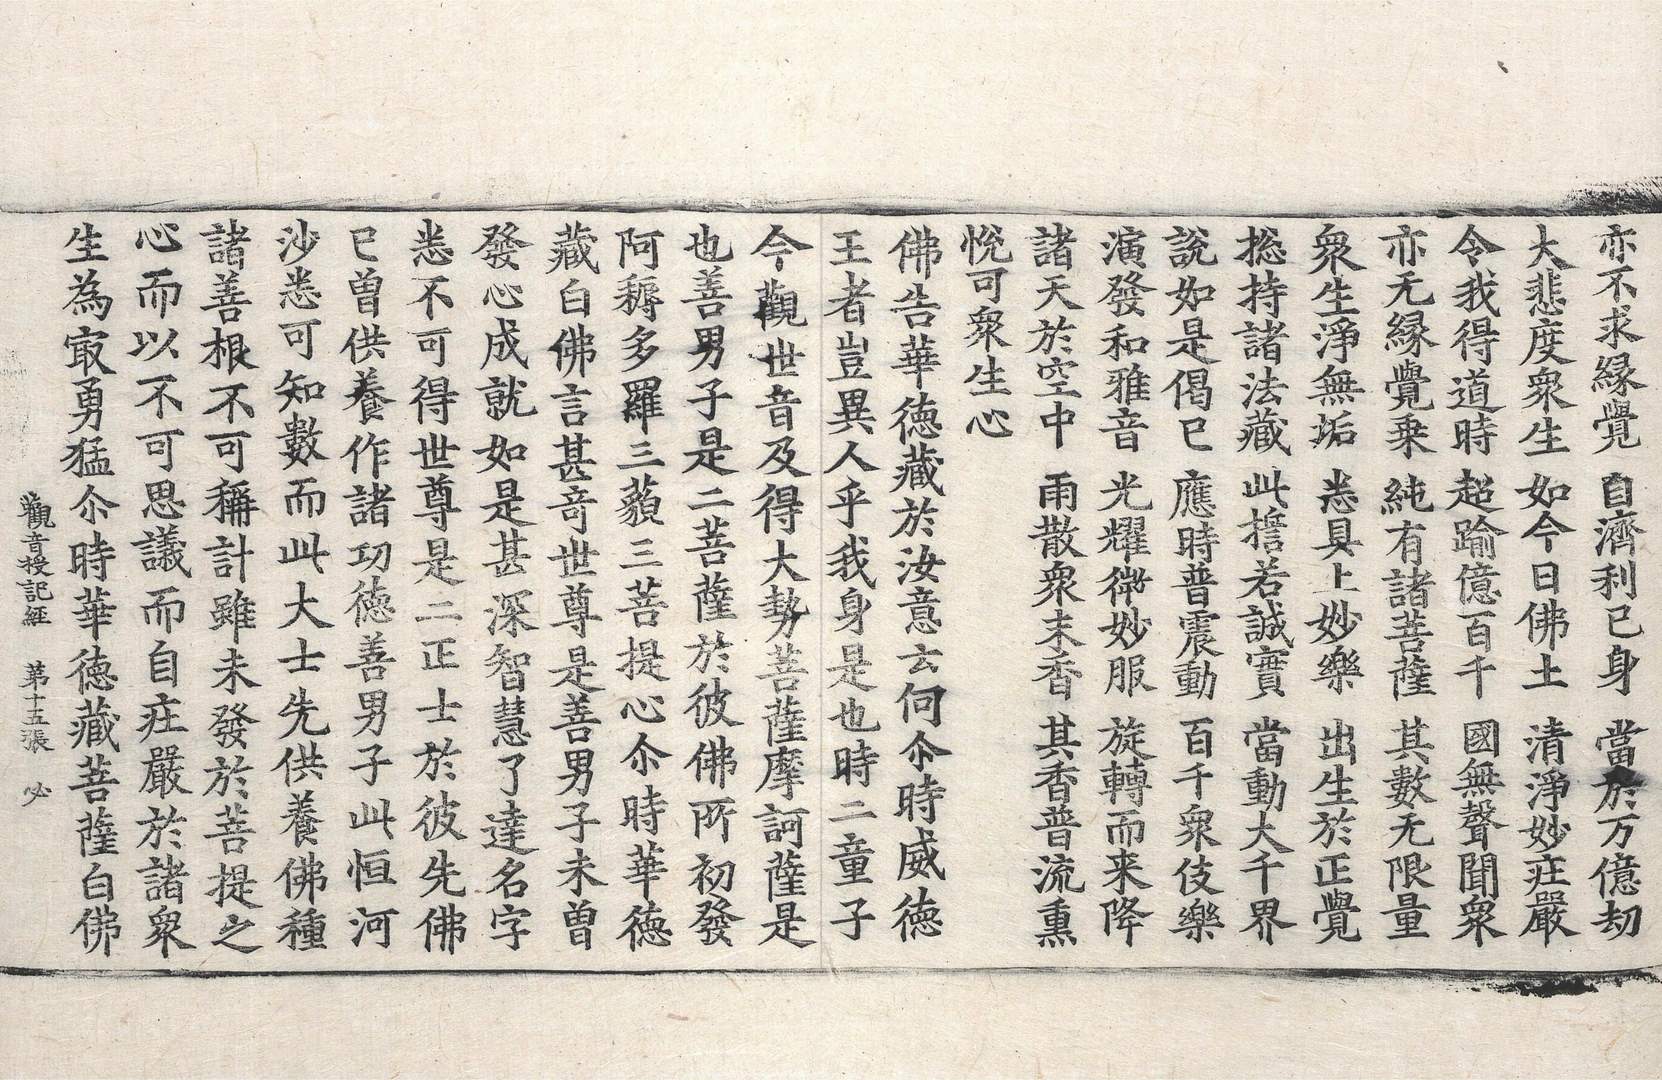 亦不求縁覺　自濟利已身　當於万億劫
大悲度衆生　如今日佛土　清淨妙莊嚴
令我得道時　超踰億百千　國無聲聞衆
亦无縁覺乗　純有諸菩薩　其數无限量
衆生淨無垢　悉具上妙樂　出生於正覺
捴持諸法藏　此誓若誠實　當動大千界
說如是偈已　應時普震動　百千衆伎樂
演發和雅音　光耀微妙服　旋轉而来降
諸天於空中　雨散衆末香　其香普流熏
悅可衆生心
佛告華德藏於汝意云何尒時威德
王者豈異人乎我身是也時二童子
今觀世音及得大勢菩薩摩訶薩是
也善男子是二菩薩於彼佛所初發
阿耨多羅三藐三菩提心尒時華德
藏白佛言甚奇世尊是善男子未曾
發心成就如是甚深智慧了達名字
悉不可得世尊是二正士於彼先佛
已曾供養作諸功德善男子此恒河
沙悉可知數而此大士先供養佛種
諸善根不可稱計雖未發於菩提之
心而以不可思議而自莊嚴於諸衆
生為冣勇猛尒時華德藏菩薩白佛
觀音授記經　第十五張　必